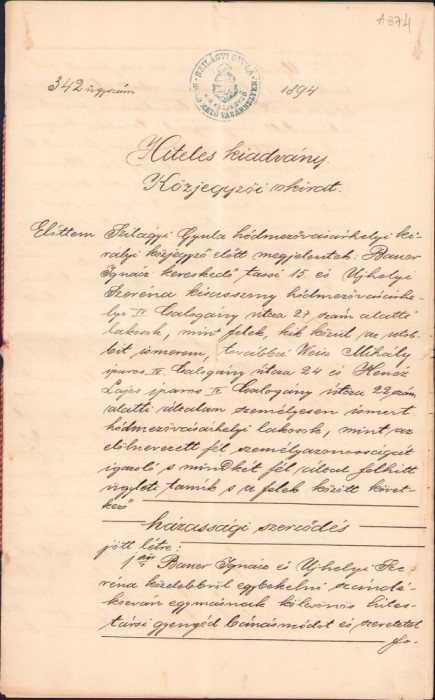 A 874
SZILÁGYI GYULA
342 ügyszám 1894
Hiteles kiadvány.
Közjegyzői okirat.
Előttem Szilágyi Gyula hódmezővásárhelyi ki-
rályi közjegyző előtt megjelentek: Bauer
Ignácz kereskedő, tassi 15 és Ujhelyi
Szeréna kisasszony hódmezővásárhe-
lyi IV Csalogány utcza 27 szám alatti
lakosok, mint felek, kik közül az utób-
bit ismerem, továbbá Weisz Mihály
iparos IV Csalogány utcza 24 és
Lajos iparos IV Csalogány utcza 22 szám
alatti általam személyesen ismert
hódmezővásárhelyi lakosok, mint az
elölnevezett fél személyazonosságát
igazoló s mindkét fél által felhitt
ügyleti tanúk s a felek között követ-
kező
házassági szerződés
jött létre:
1ször Bauer Ignácz és Ujhelyi Sze-
réna közelebbről egybekelni szándé-
kozván egymásnak kölcsönös hites-
társi gyengéd bánásmódot és szeretetet
fo-